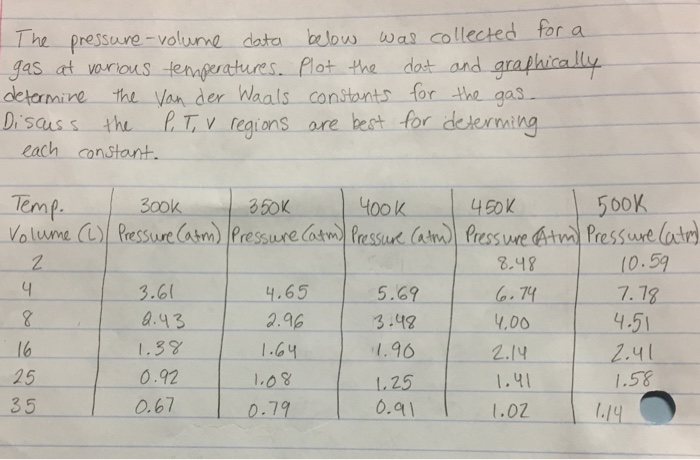 The pressure-volume data below was collected for a
gas at various temperatures. Plot the dat and graphically
determine the Van der Waals constants for the gas.
Discuss the P, T, V regions are best for determing
each constant.
Temp. 300K 350K 400K 450K 500K
Volume (L) Pressure (atm) Pressure (atm) Pressure (atm) Pressure (Atm) Pressure (atm)
2 8.48 10.59
4 3.61 4.65 5.69 6.74 7.78
8 2.43 2.96 3.48 4.00 4.51
16 1.38 1.64 1.90 2.14 2.41
25 0.92 1.08 1.25 1.41 1.58
35 0.67 0.79 0.91 1.02 1.14